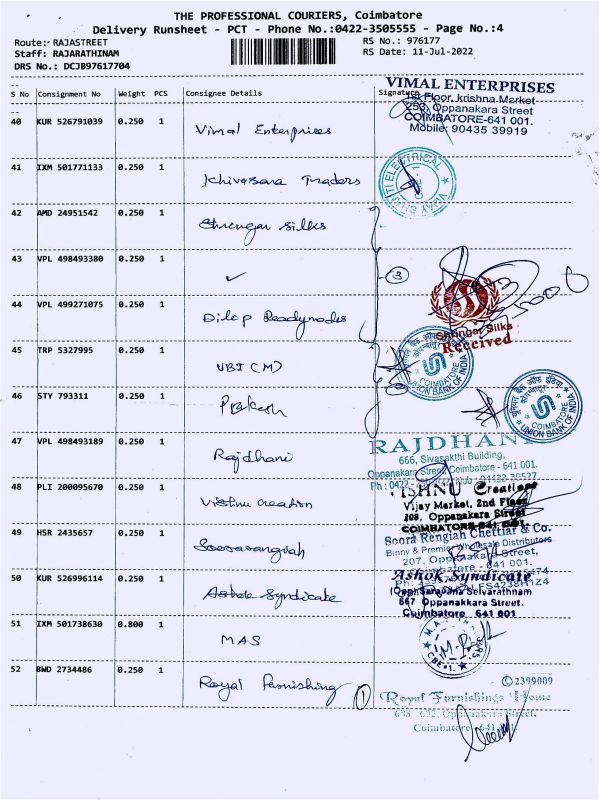 THE PROFESSIONAL COURIERS, Coimbatore
Delivery Runsheet - PCT - Phone No.:0422-3505555 - Page No.:4
Route:- RAJASTREET
RS No.: 976177
Staff: RAJARATHINAM
RS Date: 11-Jul-2022
DRS No.: DCJB97617704
S No Consignment No Weight PCS Consignee Details Signature
VIMAL ENTERPRISES
1st Floor, krishna Market
253, Oppanakara Street
COIMBATORE-641 001.
Mobile: 90435 39919
40 KUR 526791039 0.250 1 Vimal Enterprises
41 IXM 501771133 0.250 1 Khivasara Traders
ELECTRICAL
42 AMD 24951542 0.250 1 Shrengar Silks
43 VPL 498493380 0.250 1 ✓
3
44 VPL 499271075 0.250 1 Dilip Readymades
Shrengar Silks
Received
45 TRP 5327995 0.250 1 UBI (M)
COIMBATORE
UNION BANK OF INDIA
46 STY 793311 0.250 1 Prakash
COIMBATORE
UNION BANK OF INDIA
47 VPL 498493189 0.250 1 Rajdhani
RAJDHANI
666, Sivasakthi Building,
Oppanakara Street, Coimbatore - 641 001.
48 PLI 200095670 0.250 1 Vishnu Creation
VISHNU Creations
Vijay Market, 2nd Floor
208, Oppanakara Street
COIMBATORE-641 001.
49 HSR 2435657 0.250 1 Soorarangiah
Soora Rengiah Chettiar & Co.
Binny & Premier Wholesale Distributors
207, Oppanakara Street,
Coimbatore - 641 001.
50 KUR 526996114 0.250 1 Ashok Syndicate
Ashok Syndicate
667 Oppanakkara Street.
Coimbatore 641 001
51 IXM 501738630 0.800 1 MAS
CBE - 1.
52 BWD 2734486 0.250 1 Royal Furnishing 1
✆2399009
Royal Furnishings House
Oppanakara Street,
Coimbatore - 641 001